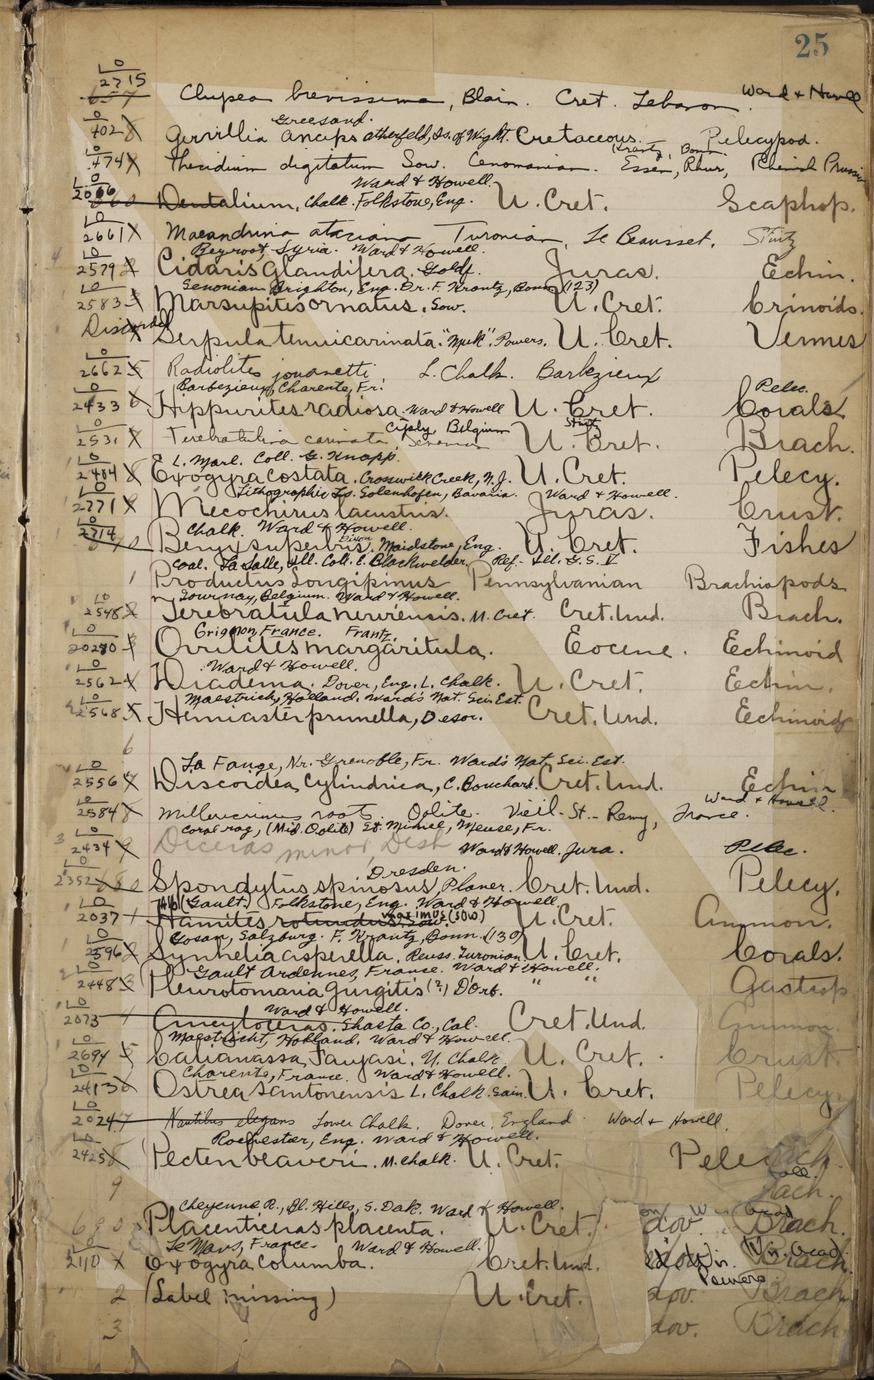 25
LO
2715
Clupea brevissima, Blain. Cret. Lebanon. Ward & Howell
Greesand.
402 Gervillia anceps Atherfield, Is. of Wight. Cretaceous. Pelecypod.
474 Thecidium digitatum Sow. Cenomanian. Essen, Rhur, Rhenish Prussia
Ward & Howell.
Dentalium, Chalk. Folkstone, Eng. U. Cret. Scaphop.
LO
2661 Maeandrina ataciana Turonian, Le Beausset,
Beyroot, Syria. Ward & Howell
2579 Cidaris glandifera. Goldf. Juras. Echin.
Senonian Brighton, Eng. Dr. F. Krantz, Bonn (123)
2583 Marsupites ornatus. Sow. U. Cret. Crinoids.
Serpula tenuicarinata. "Meek". Powers. U. Cret. Vermes
LO
2662 Radiolites jouanetti L. Chalk. Barbezieux
Barbezieux, Charente, Fr. Pelec.
2433 Hippurites radiosa. Ward & Howell U. Cret. Corals
Ciply, Belgium
2531 Terebratulina carinata U. Cret. Brach.
L. Marl. Coll. G. Knapp.
2484 Exogyra costata. Crosswick Creek, N.J. U. Cret. Pelecy.
Lithographic Ls. Solenhofen, Bavaria. Ward & Howell.
2771 Mecochirus lacustris. Juras. Crust.
LO
2714 Chalk. Ward & Howell.
Beryx superbus. Dixon Maidstone, Eng. U. Cret. Fishes
Coal. La Salle, Ill. Coll. E. Blackwelder. Ref- Ill. G.S. V
Productus Longipinus Pennsylvanian Brachiopods
Tournay, Belgium. Ward & Howell.
2548 Terebratula nerviensis. M. Cret. Cret. Und. Brach.
Grignon, France. Frantz.
Ovulites margaritula. Eocene. Echinoid
Ward & Howell.
2562 Diadema. Dover, Eng. L. Chalk. U. Cret. Echin.
Maestrich, Holland. Ward's Nat. Sci. Est.
2568 Hemiaster prunella, Desor. Cret. Und. Echinoid
6
La Fauge, Nr. Grenoble, Fr. Ward's Nat. Sci. Est.
2556 Discoidea cylindrica, C. Bouchard. Cret. Und. Echin
2584 Millercrinus root Oolite. Vieil-St.-Remy, France. Ward & Howell.
Coral rag, (Mid. Oolite) St. Mihiel, Meuse, Fr.
2434 Diceras minor, Desh Ward & Howell. Jura. Pelec.
Dresden.
2352 Spondylus spinosus, Planer. Cret. Und. Pelecy.
(Gault) Folkstone, Eng. Ward & Howell
2037 Hamites rotundus. Sow. maximus (Sow) U. Cret. Ammon.
Gosau, Salzburg. F. Krantz, Bonn. (139)
2596 Synhelia asperella. Reuss. Turonian U. Cret. Corals.
Gault Ardennes, France. Ward & Howell.
2448 Pleurotomaria gurgitis (?) D'Orb. " " Gastrop
Ward & Howell.
2073 Ancyloceras. Shasta Co., Cal. Cret. Und. Ammon.
Maestricht, Holland. Ward & Howell.
2694 Callianassa Faujasi. U. Chalk. U. Cret. Crust.
Charente, France. Ward & Howell.
2413 Ostrea santonensis L. Chalk. Sain. U. Cret. Pelecy.
LO
2024 Nautilus elegans Lower Chalk. Dover, England Ward & Howell.
Rochester, Eng. Ward & Howell.
2425 Pecten beaveri. M. Chalk. U. Cret. Pele
9
Cheyenne R., Bl. Hills, S. Dak. Ward & Howell.
Placenticeras placenta. U. Cret. dov. Brach.
Le Mans, France. Ward & Howell.
2110 Exogyra columba. Cret. Und. Brach.
Powers
2 (Label missing) U. Cret. dov. Brach
3 dov. Brach